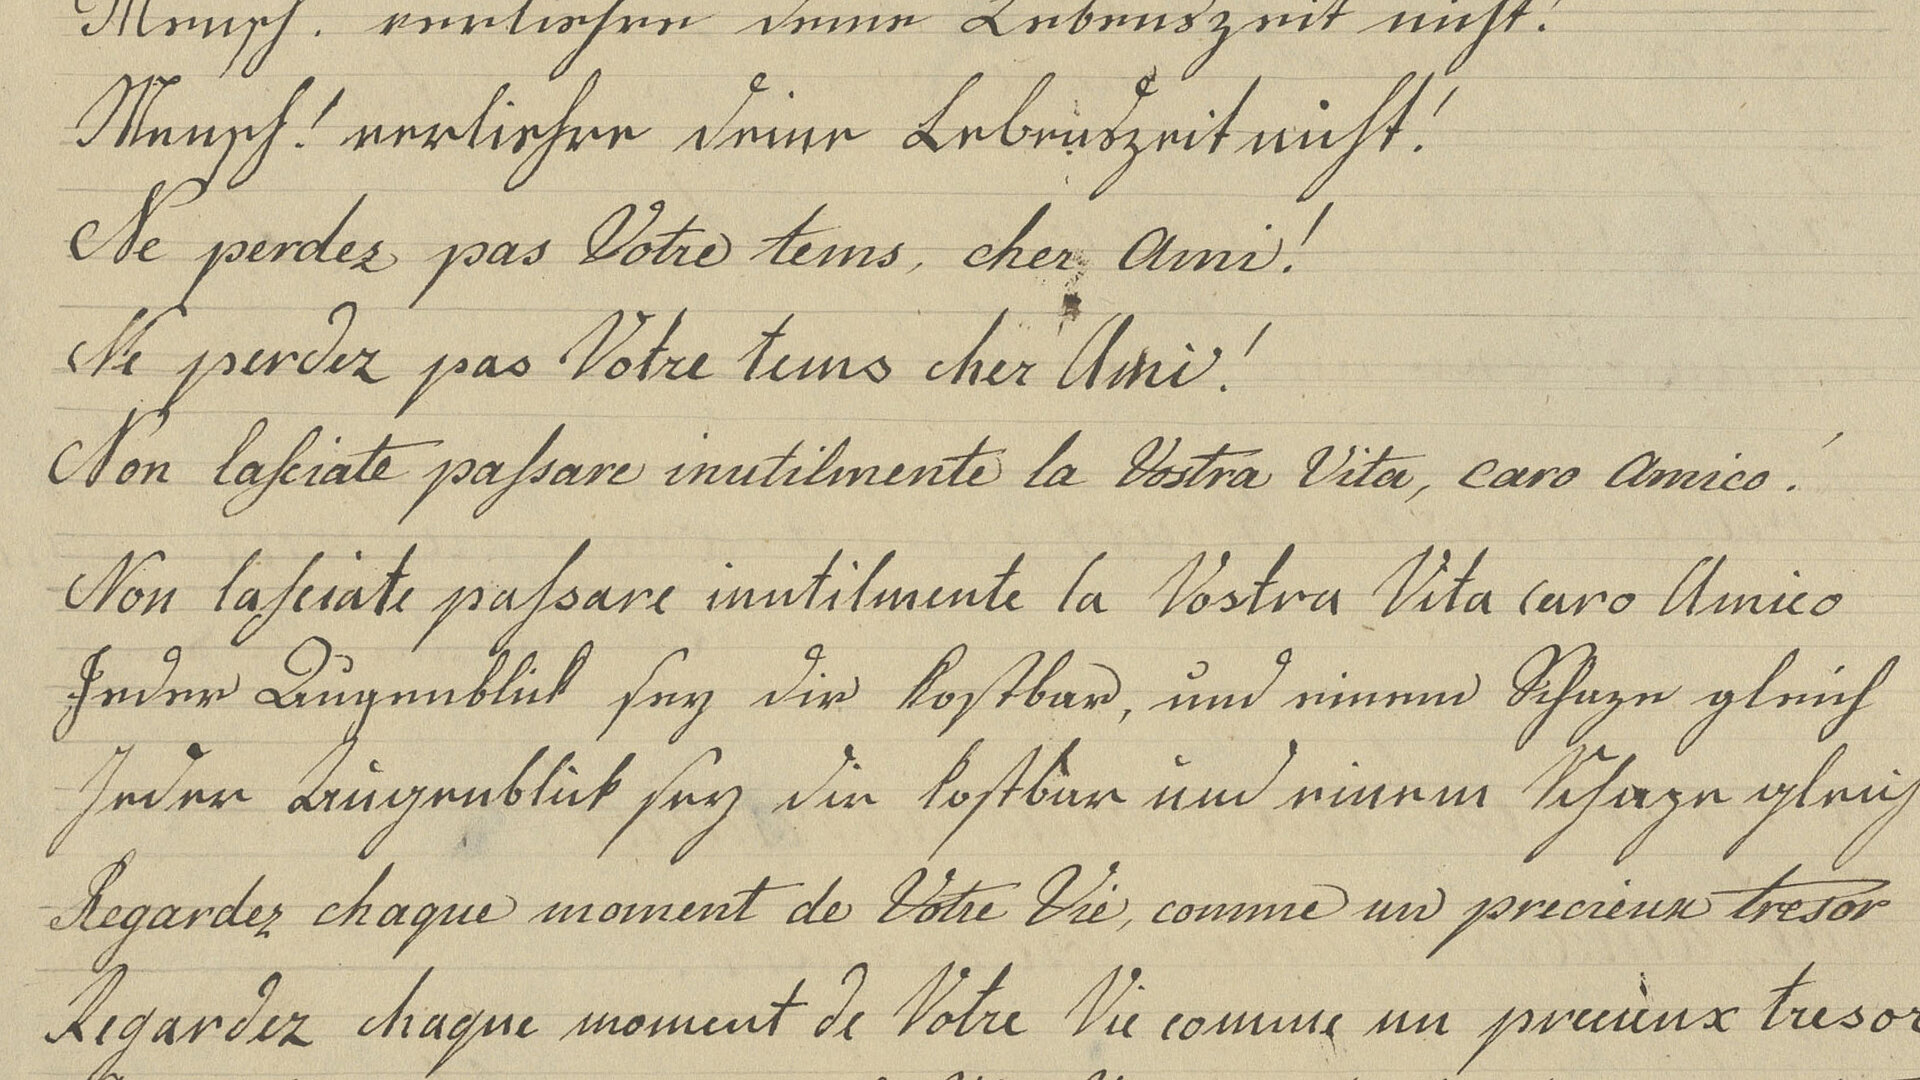 Mensch! verliehre deine Lebenszeit nicht!
Mensch! verliehre deine Lebenszeit nicht!
Ne perdez pas Votre tems, cher Ami!
Ne perdez pas Votre tems cher Ami!
Non laſciate paſsare inutilmente la Vostra Vita, caro Amico!
Non laſciate paſsare inutilmente la Vostra Vita caro Amico
Jeder Augenblick sey dir kostbar, und einem Schaze gleich
Jeder Augenblick sey dir kostbar und einem Schaze gleich
Regardez chaque moment de Votre Vie, comme un precieux tresor
Regardez chaque moment de Votre Vie comme un precieux tresor